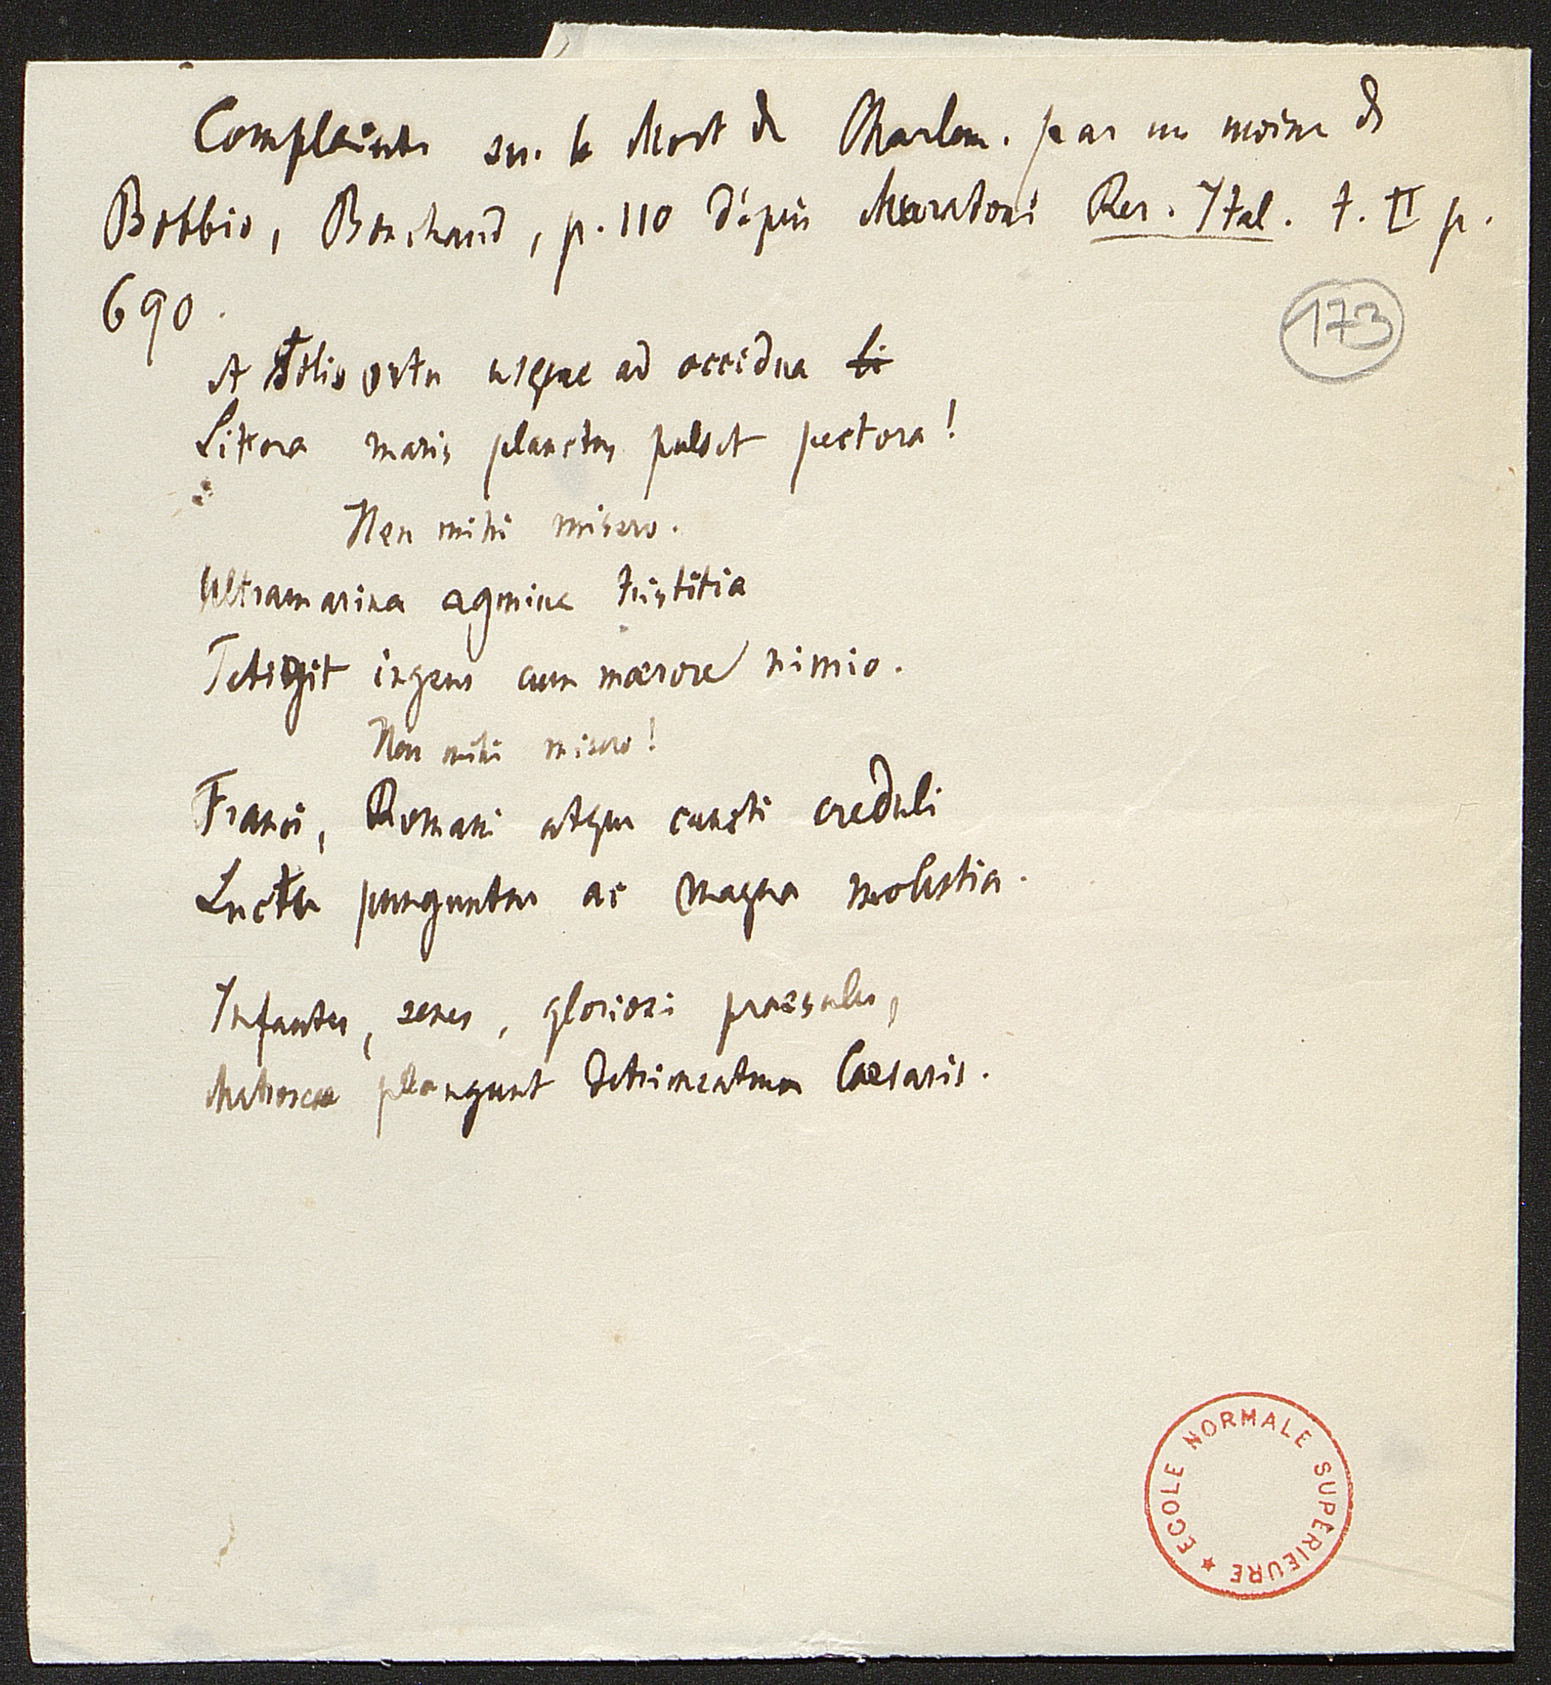 Complainte sur la Mort de Charlem. par un moine de
Bobbio, Bouchaud, p. 110 d'après Muratori Rer. Ital. t. II p.
690.
173
A solis ortu usque ad occidua li
Littora maris planctus pulsat pectora!
Heu mihi misero.
Ultramarina agmina tristitia
Tetigit ingens cum mœrore nimio.
Heu mihi misero!
Franci, Romani atque cuncti creduli
Luctu punguntur ac magna molestia.
Infantes, senes, gloriosi praesules,
Matronae plangunt detrimentum Caesaris.
ECOLE NORMALE SUPÉRIEURE